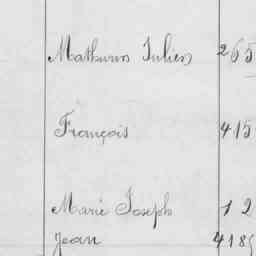 Mathurin Julien 265
François 415
Marie Joseph 12
Jean 418